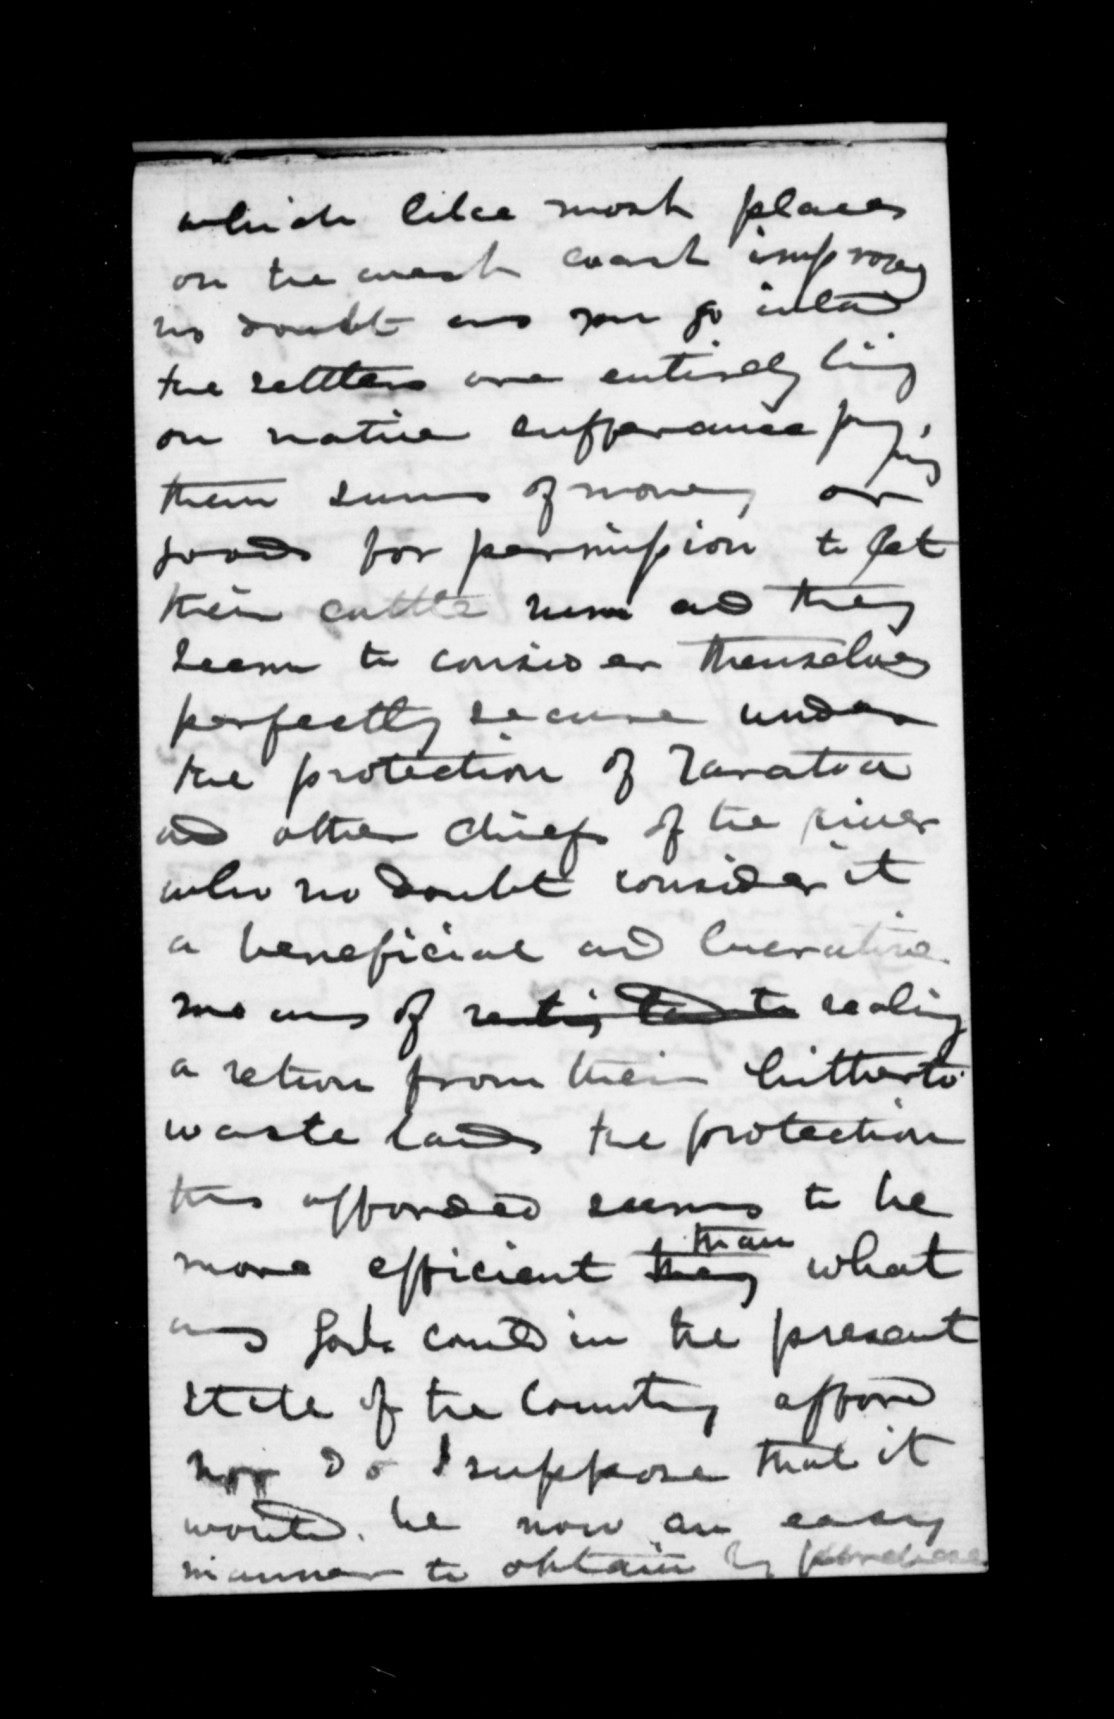 which like most places
on the west coast improves
no doubt as you go inland
the settlers are entirely living
on native sufferance paying
them sums of money or
goods for permission to let
their cattle run and they
seem to consider themselves
perfectly secure under
the protection of
and other chiefs of the river
who no doubt consider it
a beneficial and lucrative
means of realing
a return from their hitherto
waste lands the protection
thus afforded seems to be
more efficient they than what
any Govt could in the present
state of the Country afford
nor do I suppose that it
would be now an easy
manner to obtain by purchase